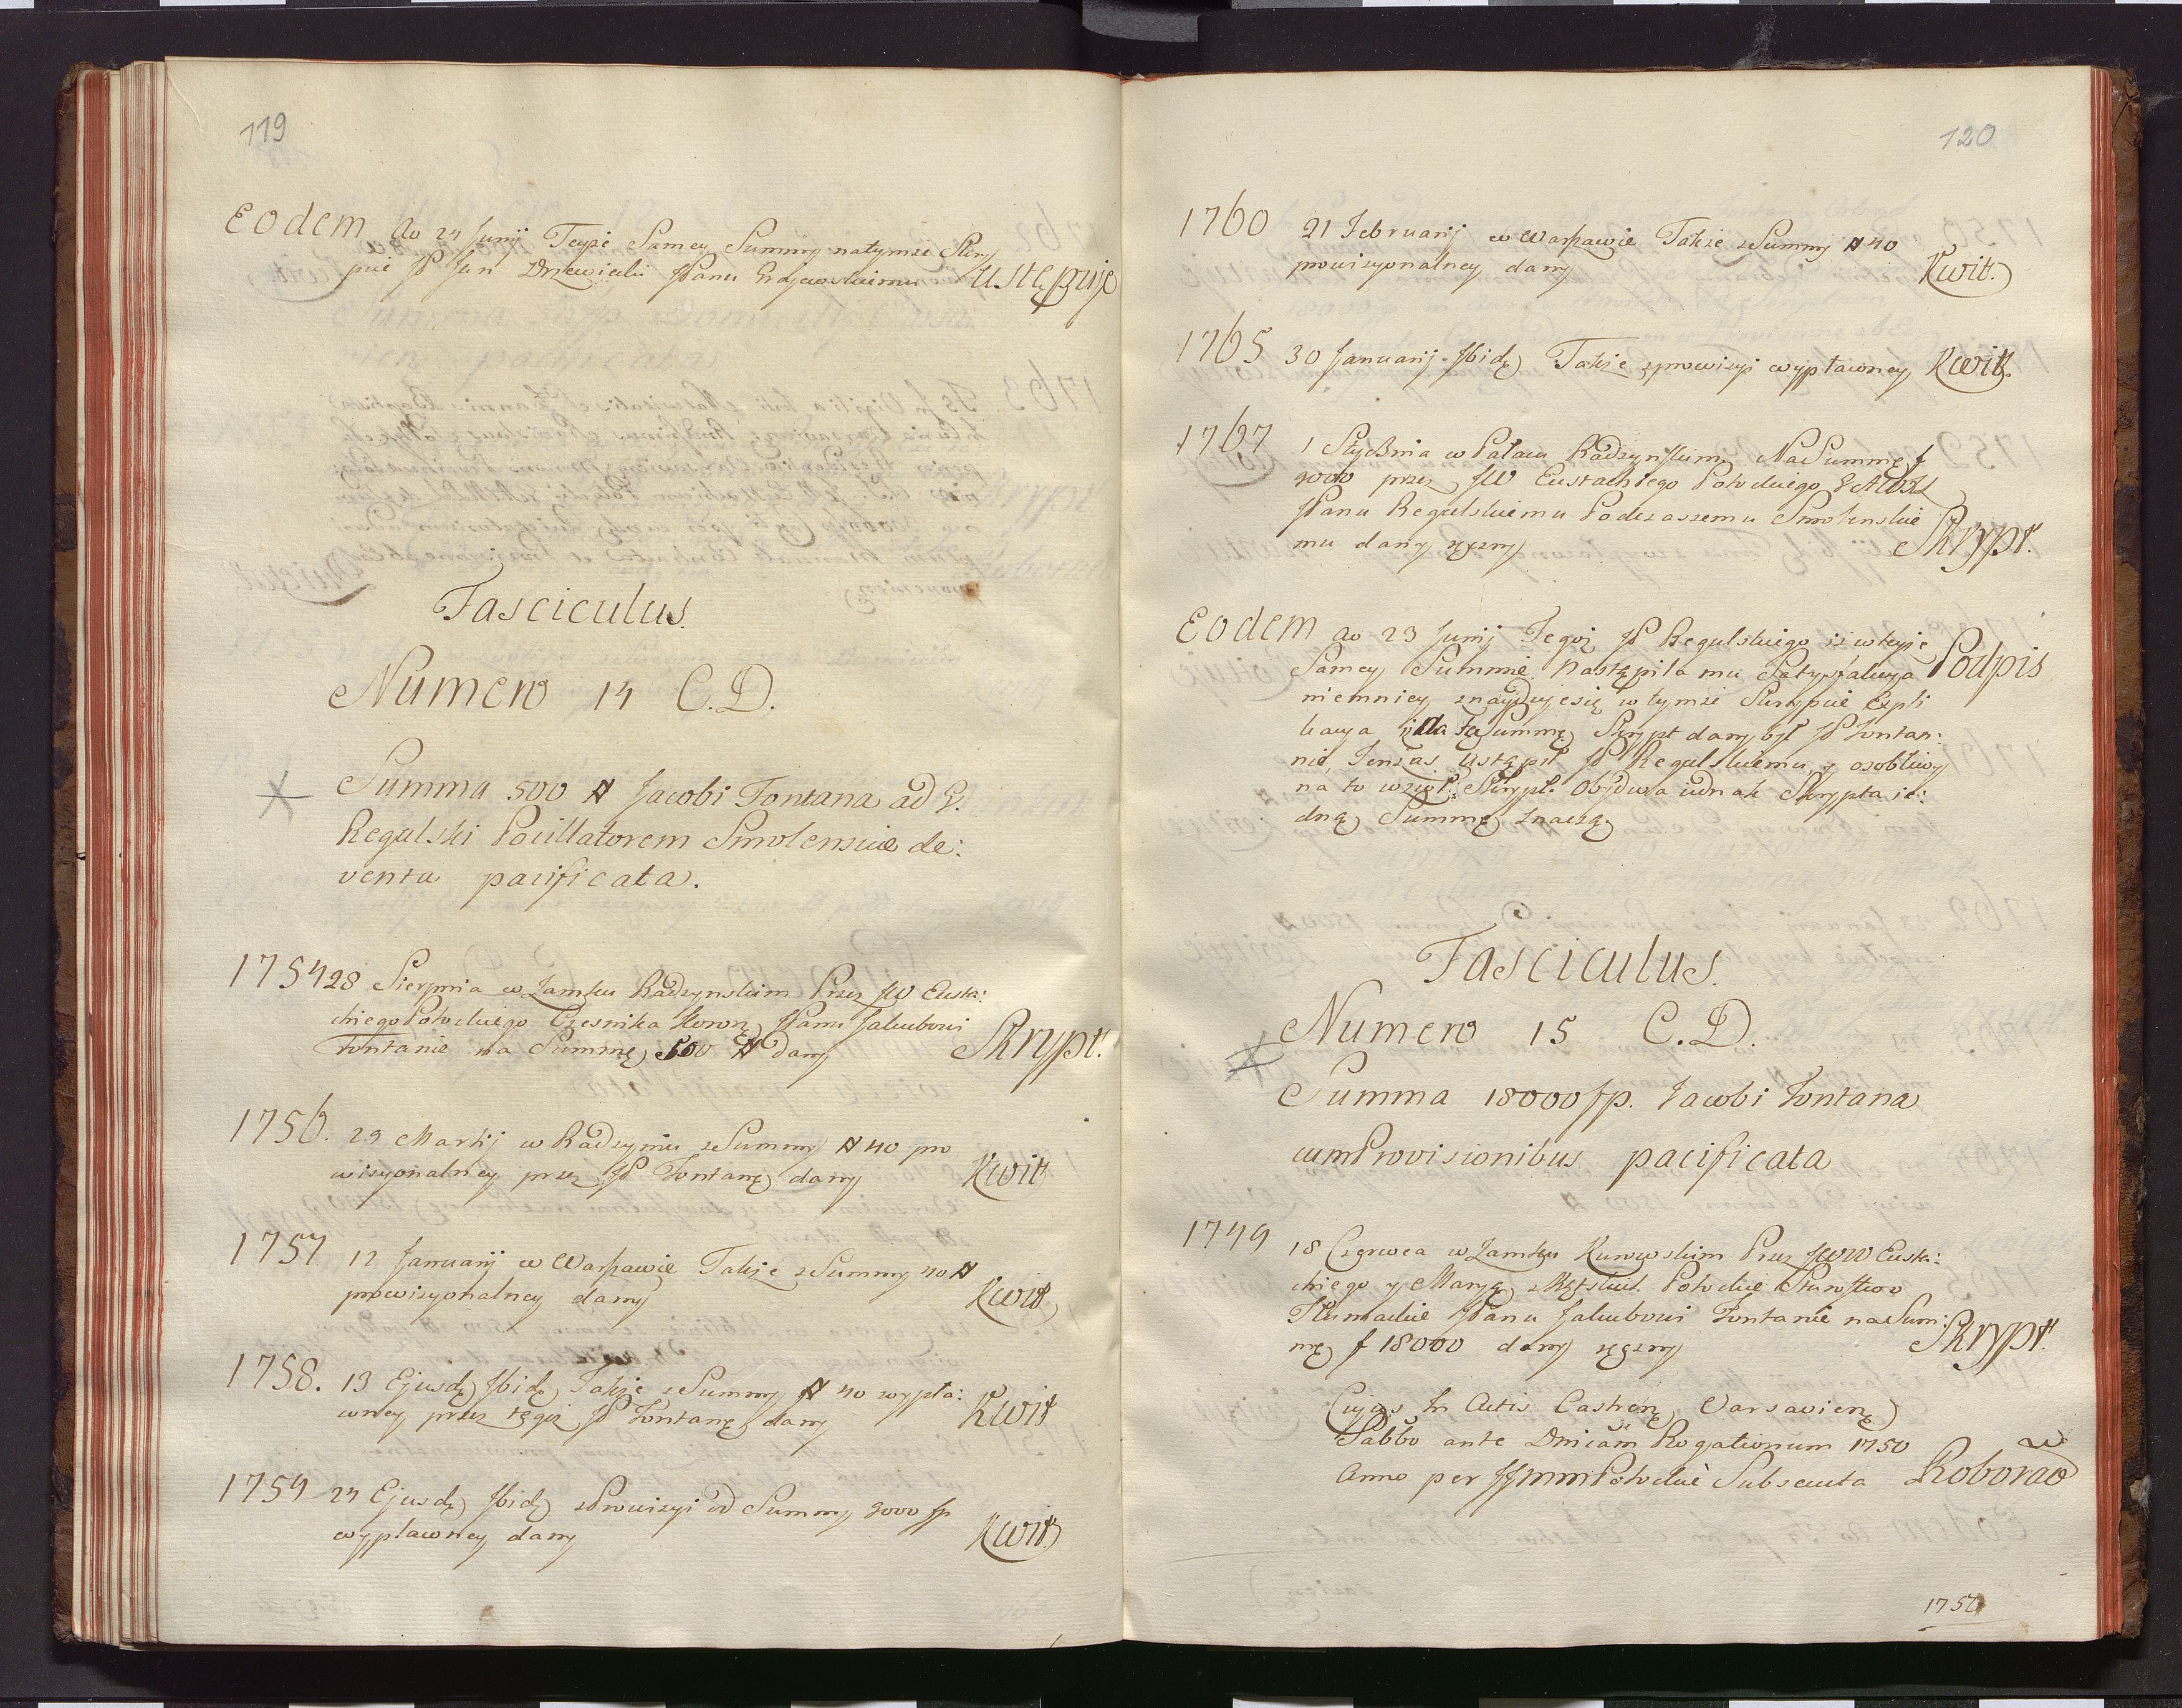 119
Eodem Ao 24 Junij Teyże Samey Summy natymże Skry
pcie JP Jan Drzewiecki JPanu Grajewskiemu Ustępuje
Fasciculus
Numero 14 C.D.
Summa 500 # Jacobi Fontana ad G.
Regulski Pocillatorem Smolenscie de:
venta pacificata.
1754 28 Sierpnia w Zamku Radzynskim Przez JW Eusta:
chiego Potockiego Czesnika Koron JPanu Jakubowi
Fontanie na Summę 500 # dany Skrypt.
1756. 29 Martij w Radzyniu z Summy # 40 pro
wizyonalney przez JP Fontanę dany Kwit
1757 12 Januarij w Warszawie Także z Summy 40 #
prowizyonalney dany Kwit
1758. 13 Ejusdę Ibidę Także z Summy # 40 wypła:
coney przez tegoż JP Fontanę dany Kwit
1759 24 Ejusdę Ibidę z Prowizyi od Summy 9000 fp
wypłaconey dany Kwit
120
1760 21 Februarij w Warszawie Także z Summy # 40
prowizyonalney dany Kwit.
1765 30 Januarij Ibidę Także z prowizyi wypłaconey Kwit.
1767 1 Stycznia w Pałacu Radzynskim Na Summę f
9000 przez JW Eustachiego Potockiego
JPanu Regulskiemu Podczaszemu Smolenskie
mu dany ręczny Skrypt.
Eodem Ao 23 Junij Tegoż JP Regulskiego iż w teyże
Samey Summie Nastąpiła mu Satysfakcya Podpis
niemniey znayduje się w tymże Skrypcie Expli
kacya i na tę Summę Skrypt dany był JP Fontan:
nie, Tenżas Ustąpił JP Regulskiemu, y osobliwy
na to wziął Skrypt. Obydwa iednak Skrypta ie:
dną Summę Znaczą.
Fasciculus.
Numero 15 C.D.
Summa 18000 fp. Jacobi Fontana
cum Provisionibus pacificata
1749 18 Czerwca w Zamku Kurowskim Przez JWW Eusta:
chiego y Maryę z Kątskich Potockie Starostwo
Tłumackie JPanu Jakubowi Fontanie na Sum:
mę f 18000 dany ręczny Skrypt.
Cujus In Actis Castren Varsavien
Sabbo ante Dnicam Rogationum 1750
Anno per JJmm Potockie Subsecuta Roborao
1750